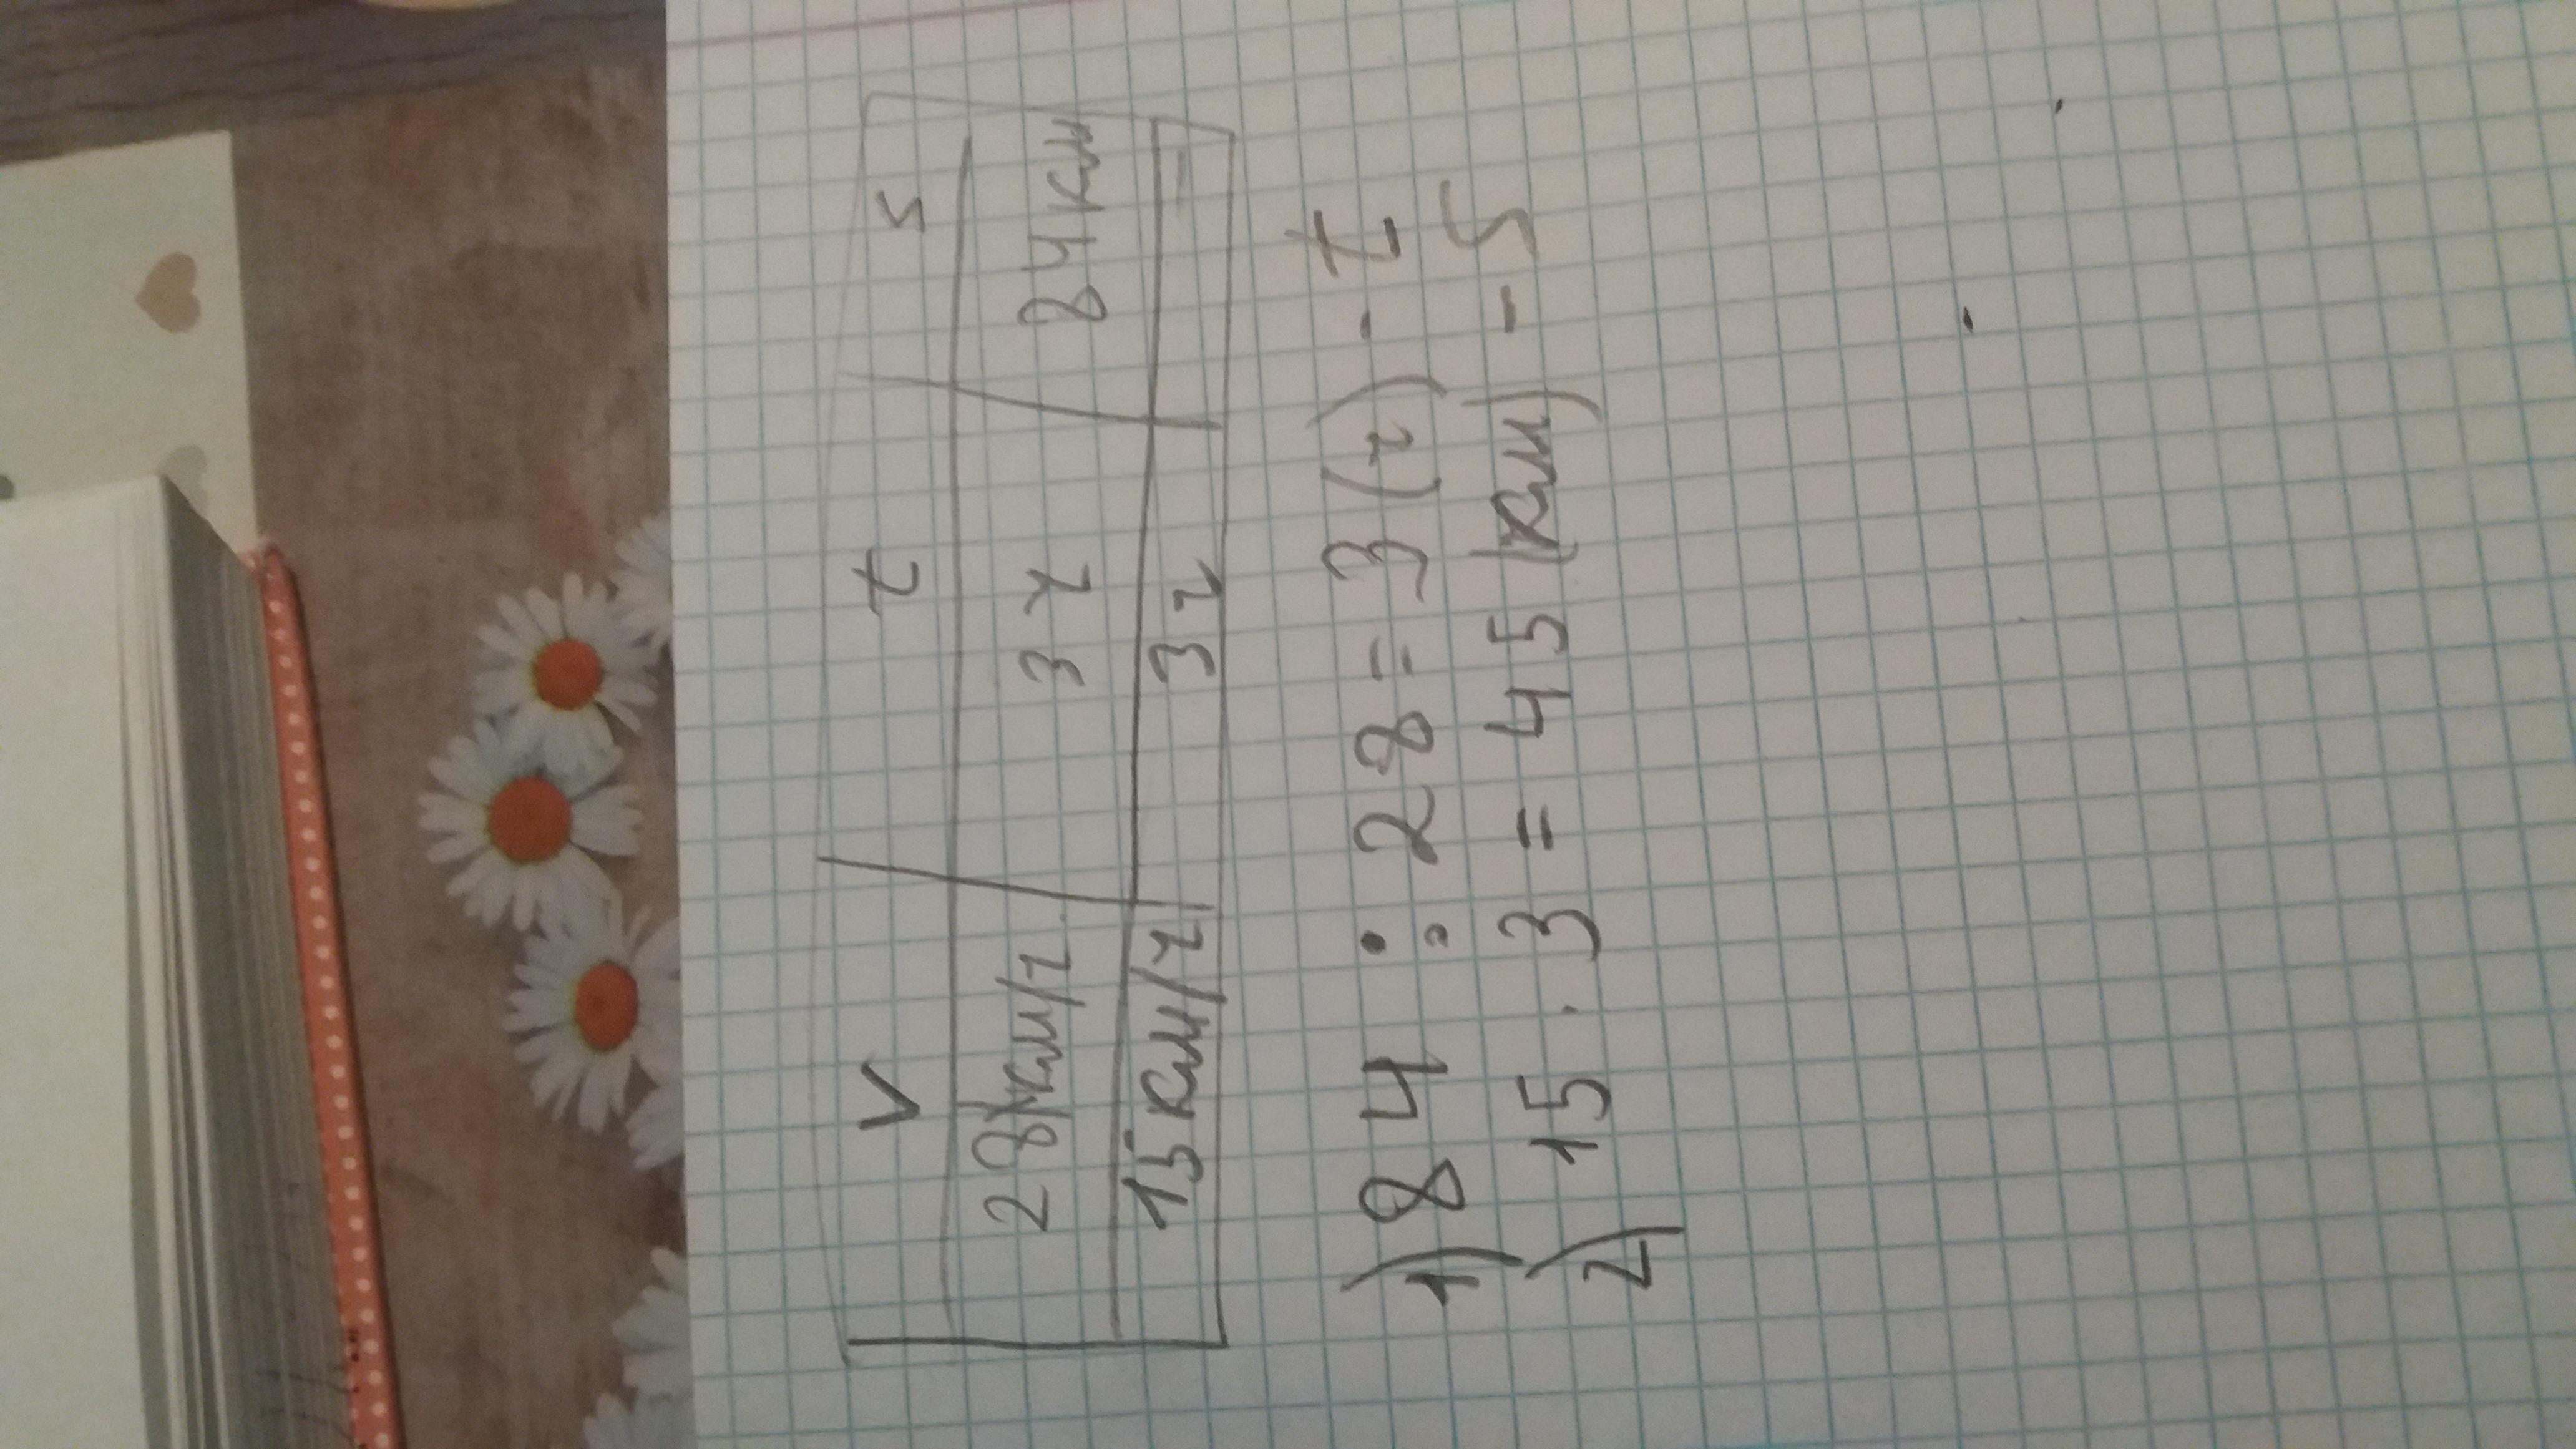 V t S
28 км/ч 3 ч 84 км
15 км/ч 3 ч —
1) 84 : 28 = 3 (ч) - t
2) 15 · 3 = 45 (км) - S